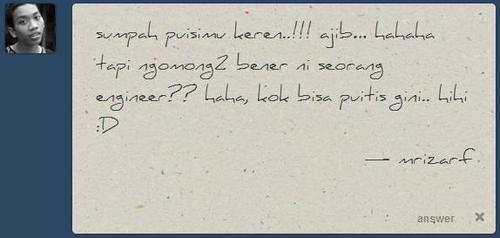 sumpah puisimu keren..!!! ajib... hahaha
tapi ngomong2 bener ni seorang
engineer?? haha, kok bisa puitis gini.. hihi
:D
— mrizarf
answer ×